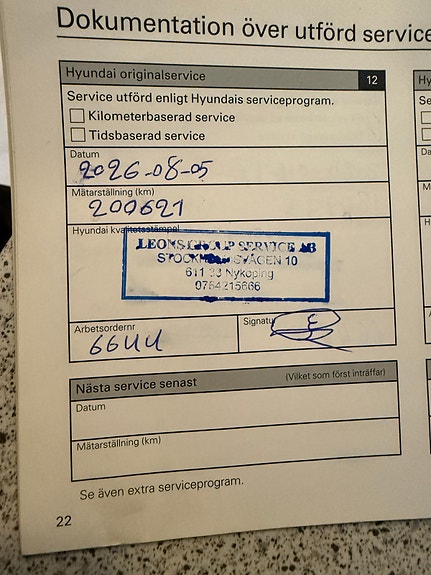 Dokumentation över utförd service
Hyundai originalservice 12
Service utförd enligt Hyundais serviceprogram.
Kilometerbaserad service
Tidsbaserad service
Datum
2026-08-05
Mätarställning (km)
200621
Hyundai kvalitetsstämpel
LEONS GROUP SERVICE AB
STOCKHOLMSVÄGEN 10
611 33 Nyköping
0764215666
Arbetsordernr
6644
Signatur
Nästa service senast (Vilket som först inträffar)
Datum
Mätarställning (km)
Se även extra serviceprogram.
22